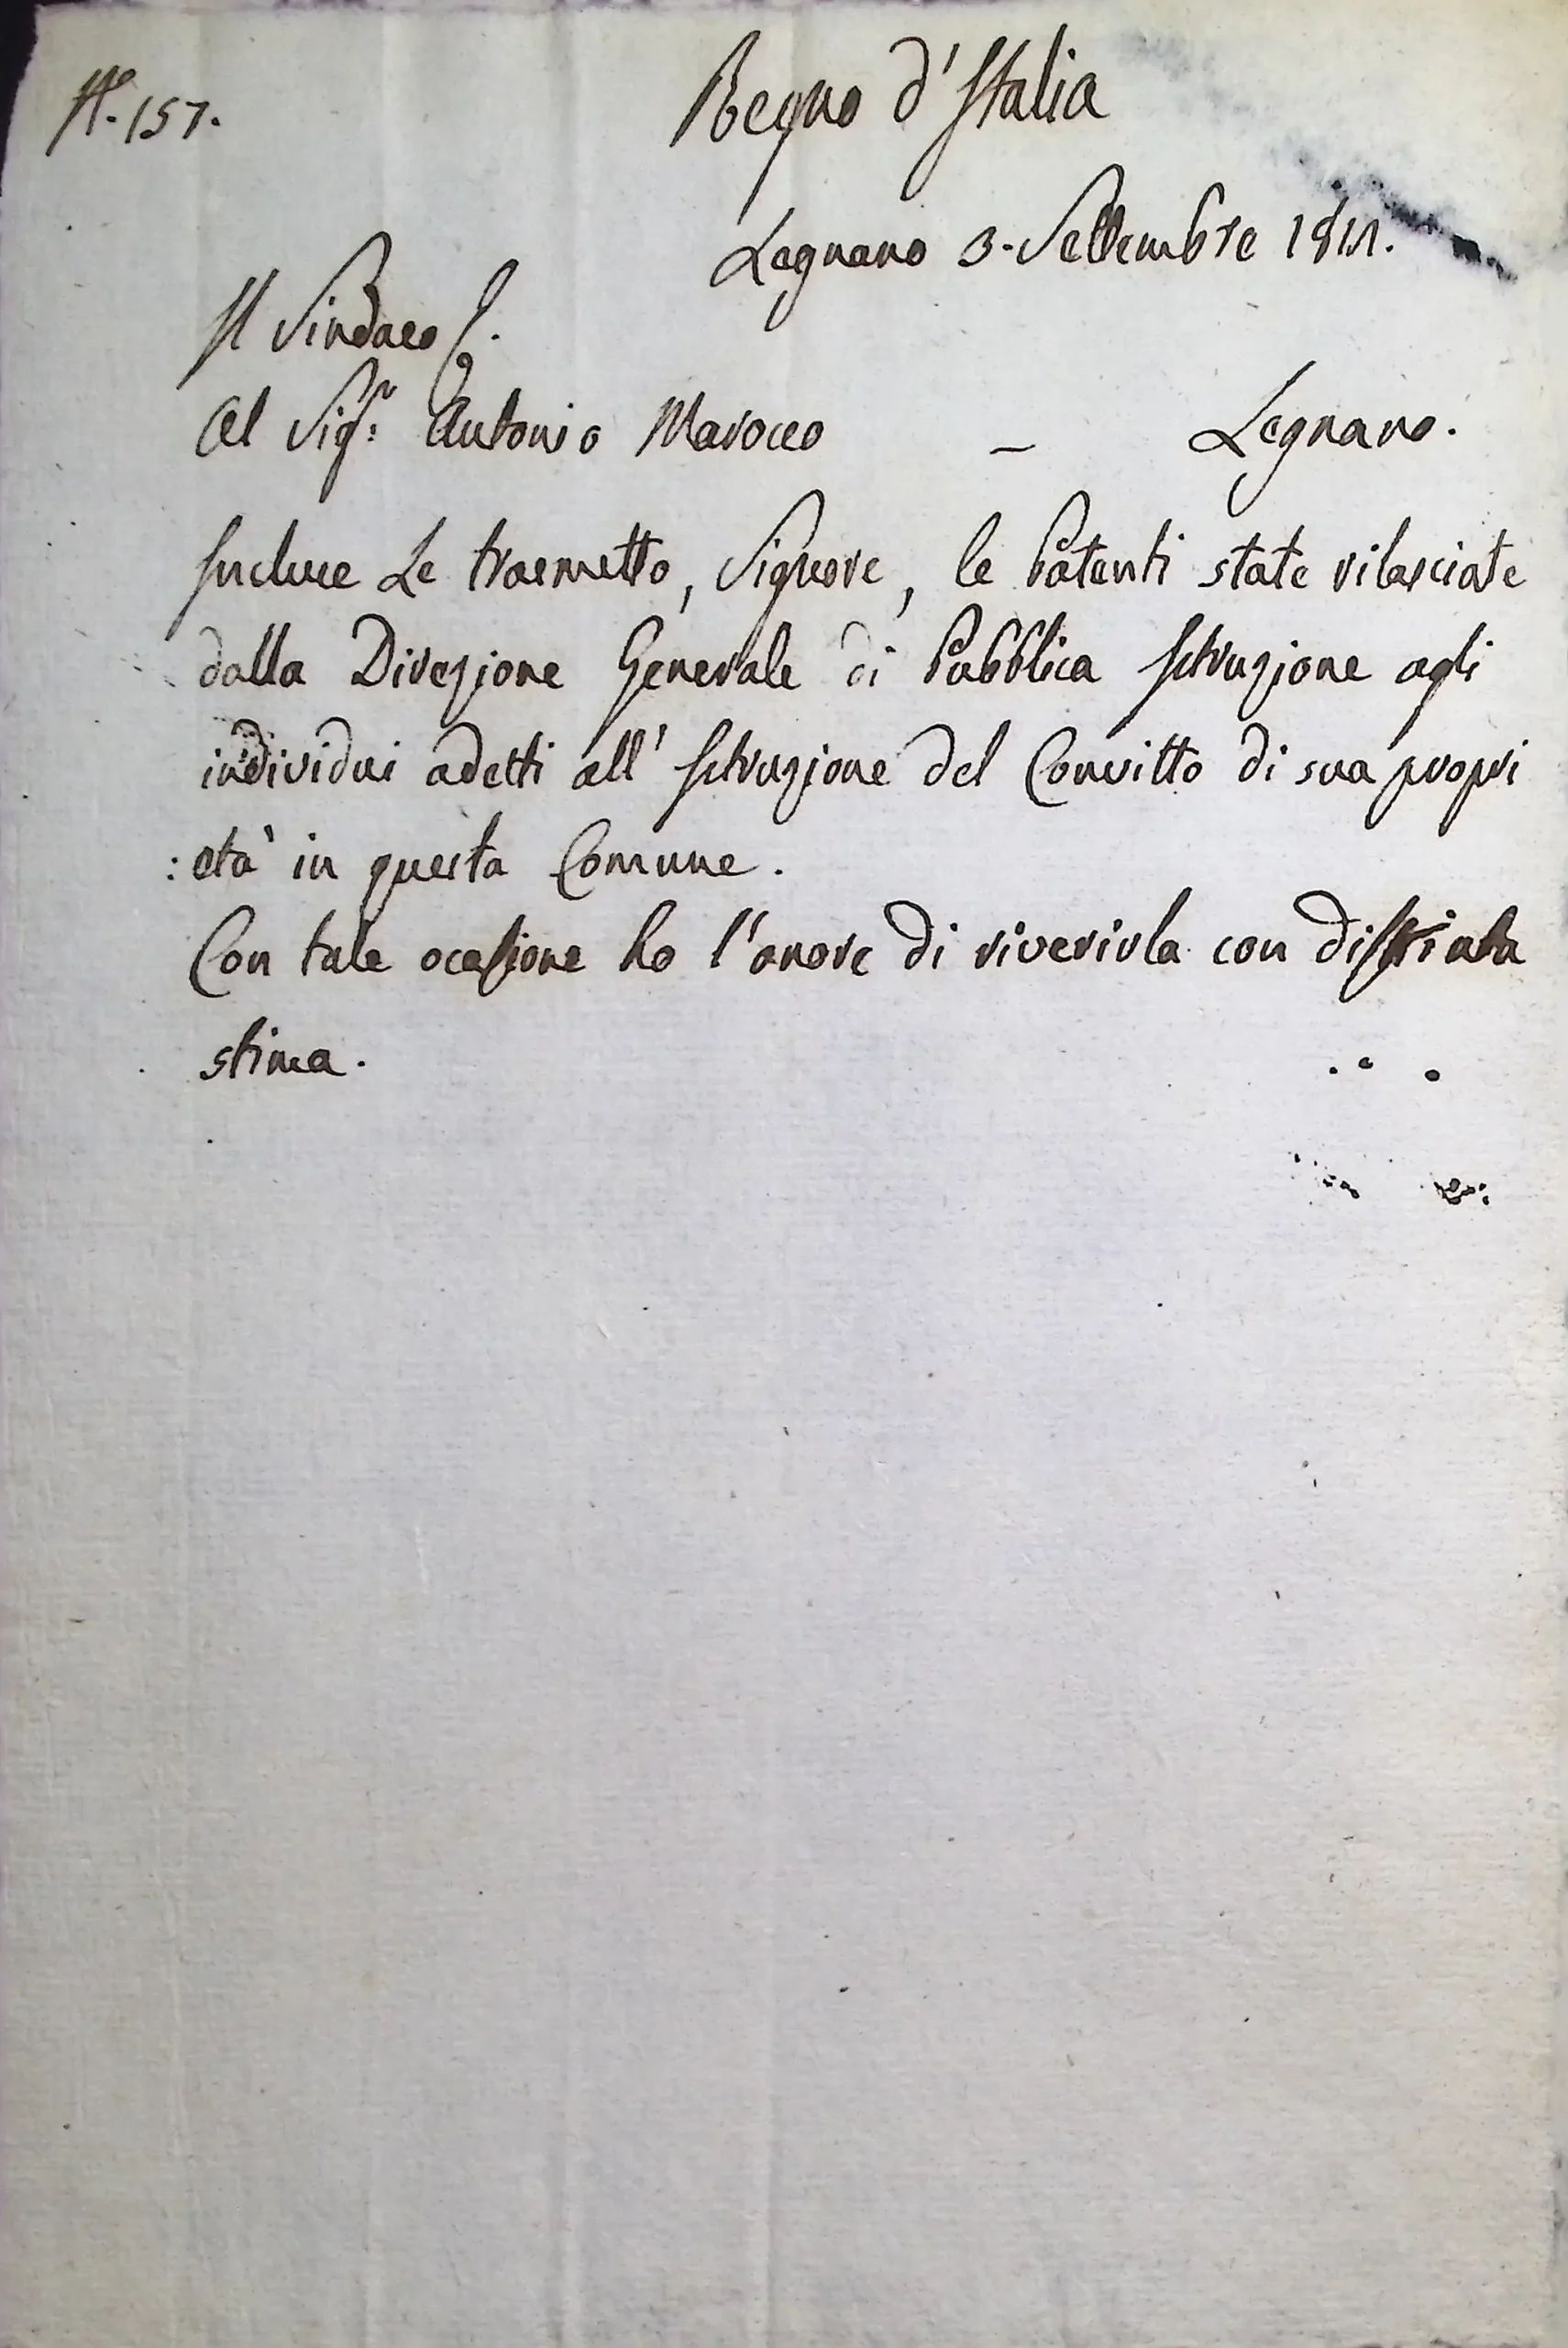 N. 157.
Regno d'Italia
Legnano 3. Settembre 1811.
Il Sindaco
Al Sig.r Antonio Marocco – Legnano.
Incluse Le trasmetto, Signore, le Patenti state rilasciate
dalla Direzione Generale di Pubblica Istruzione agli
individui adetti all' Istruzione del Convitto di sua propri
:età in questa Comune.
Con tale ocasione ho l'onore di riverirla con distinta
stima.